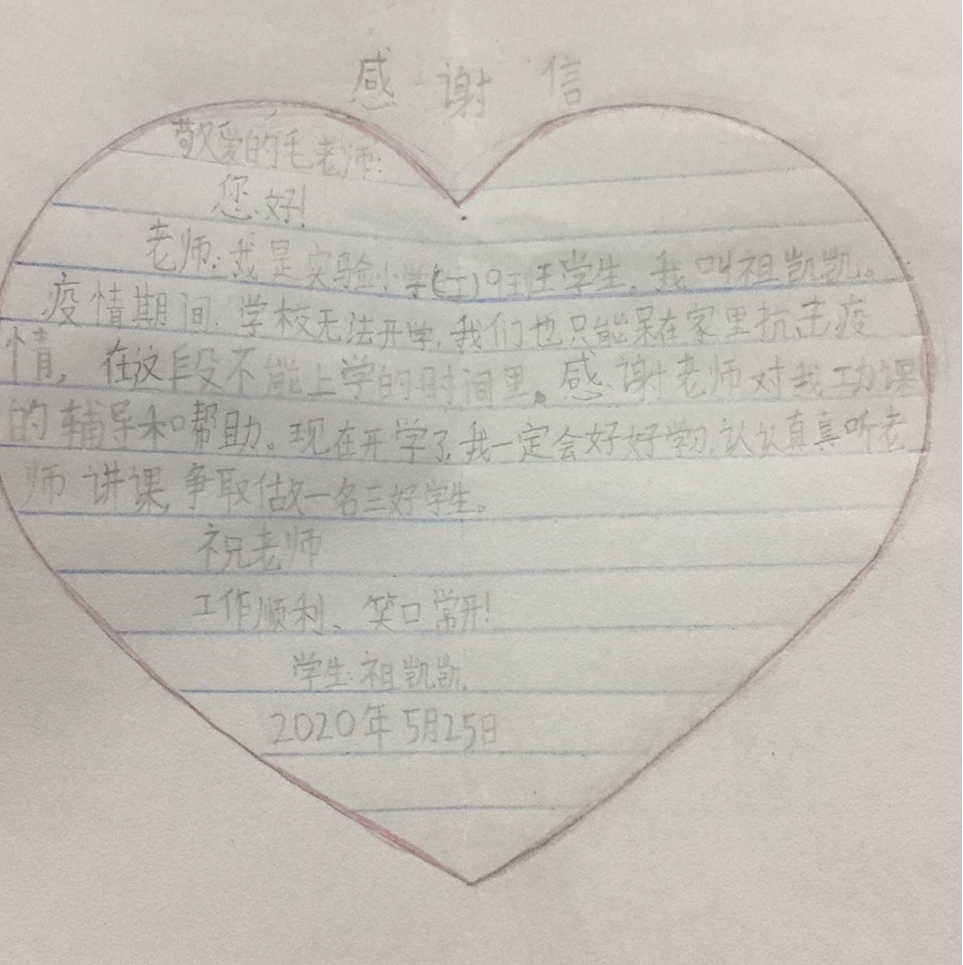 感谢信
敬爱的毛老师:
您好!
老师:我是实验小学(五)9班学生,我叫祖凯凯。
疫情期间,学校无法开学,我们也只能呆在家里抗击疫
情,在这段不能上学的时间里。感谢老师对我功课
的辅导和帮助。现在开学了,我一定会好好学习,认认真真听老
师讲课,争取做一名三好学生。
祝老师
工作顺利、笑口常开!
学生:祖凯凯
2020年5月25日